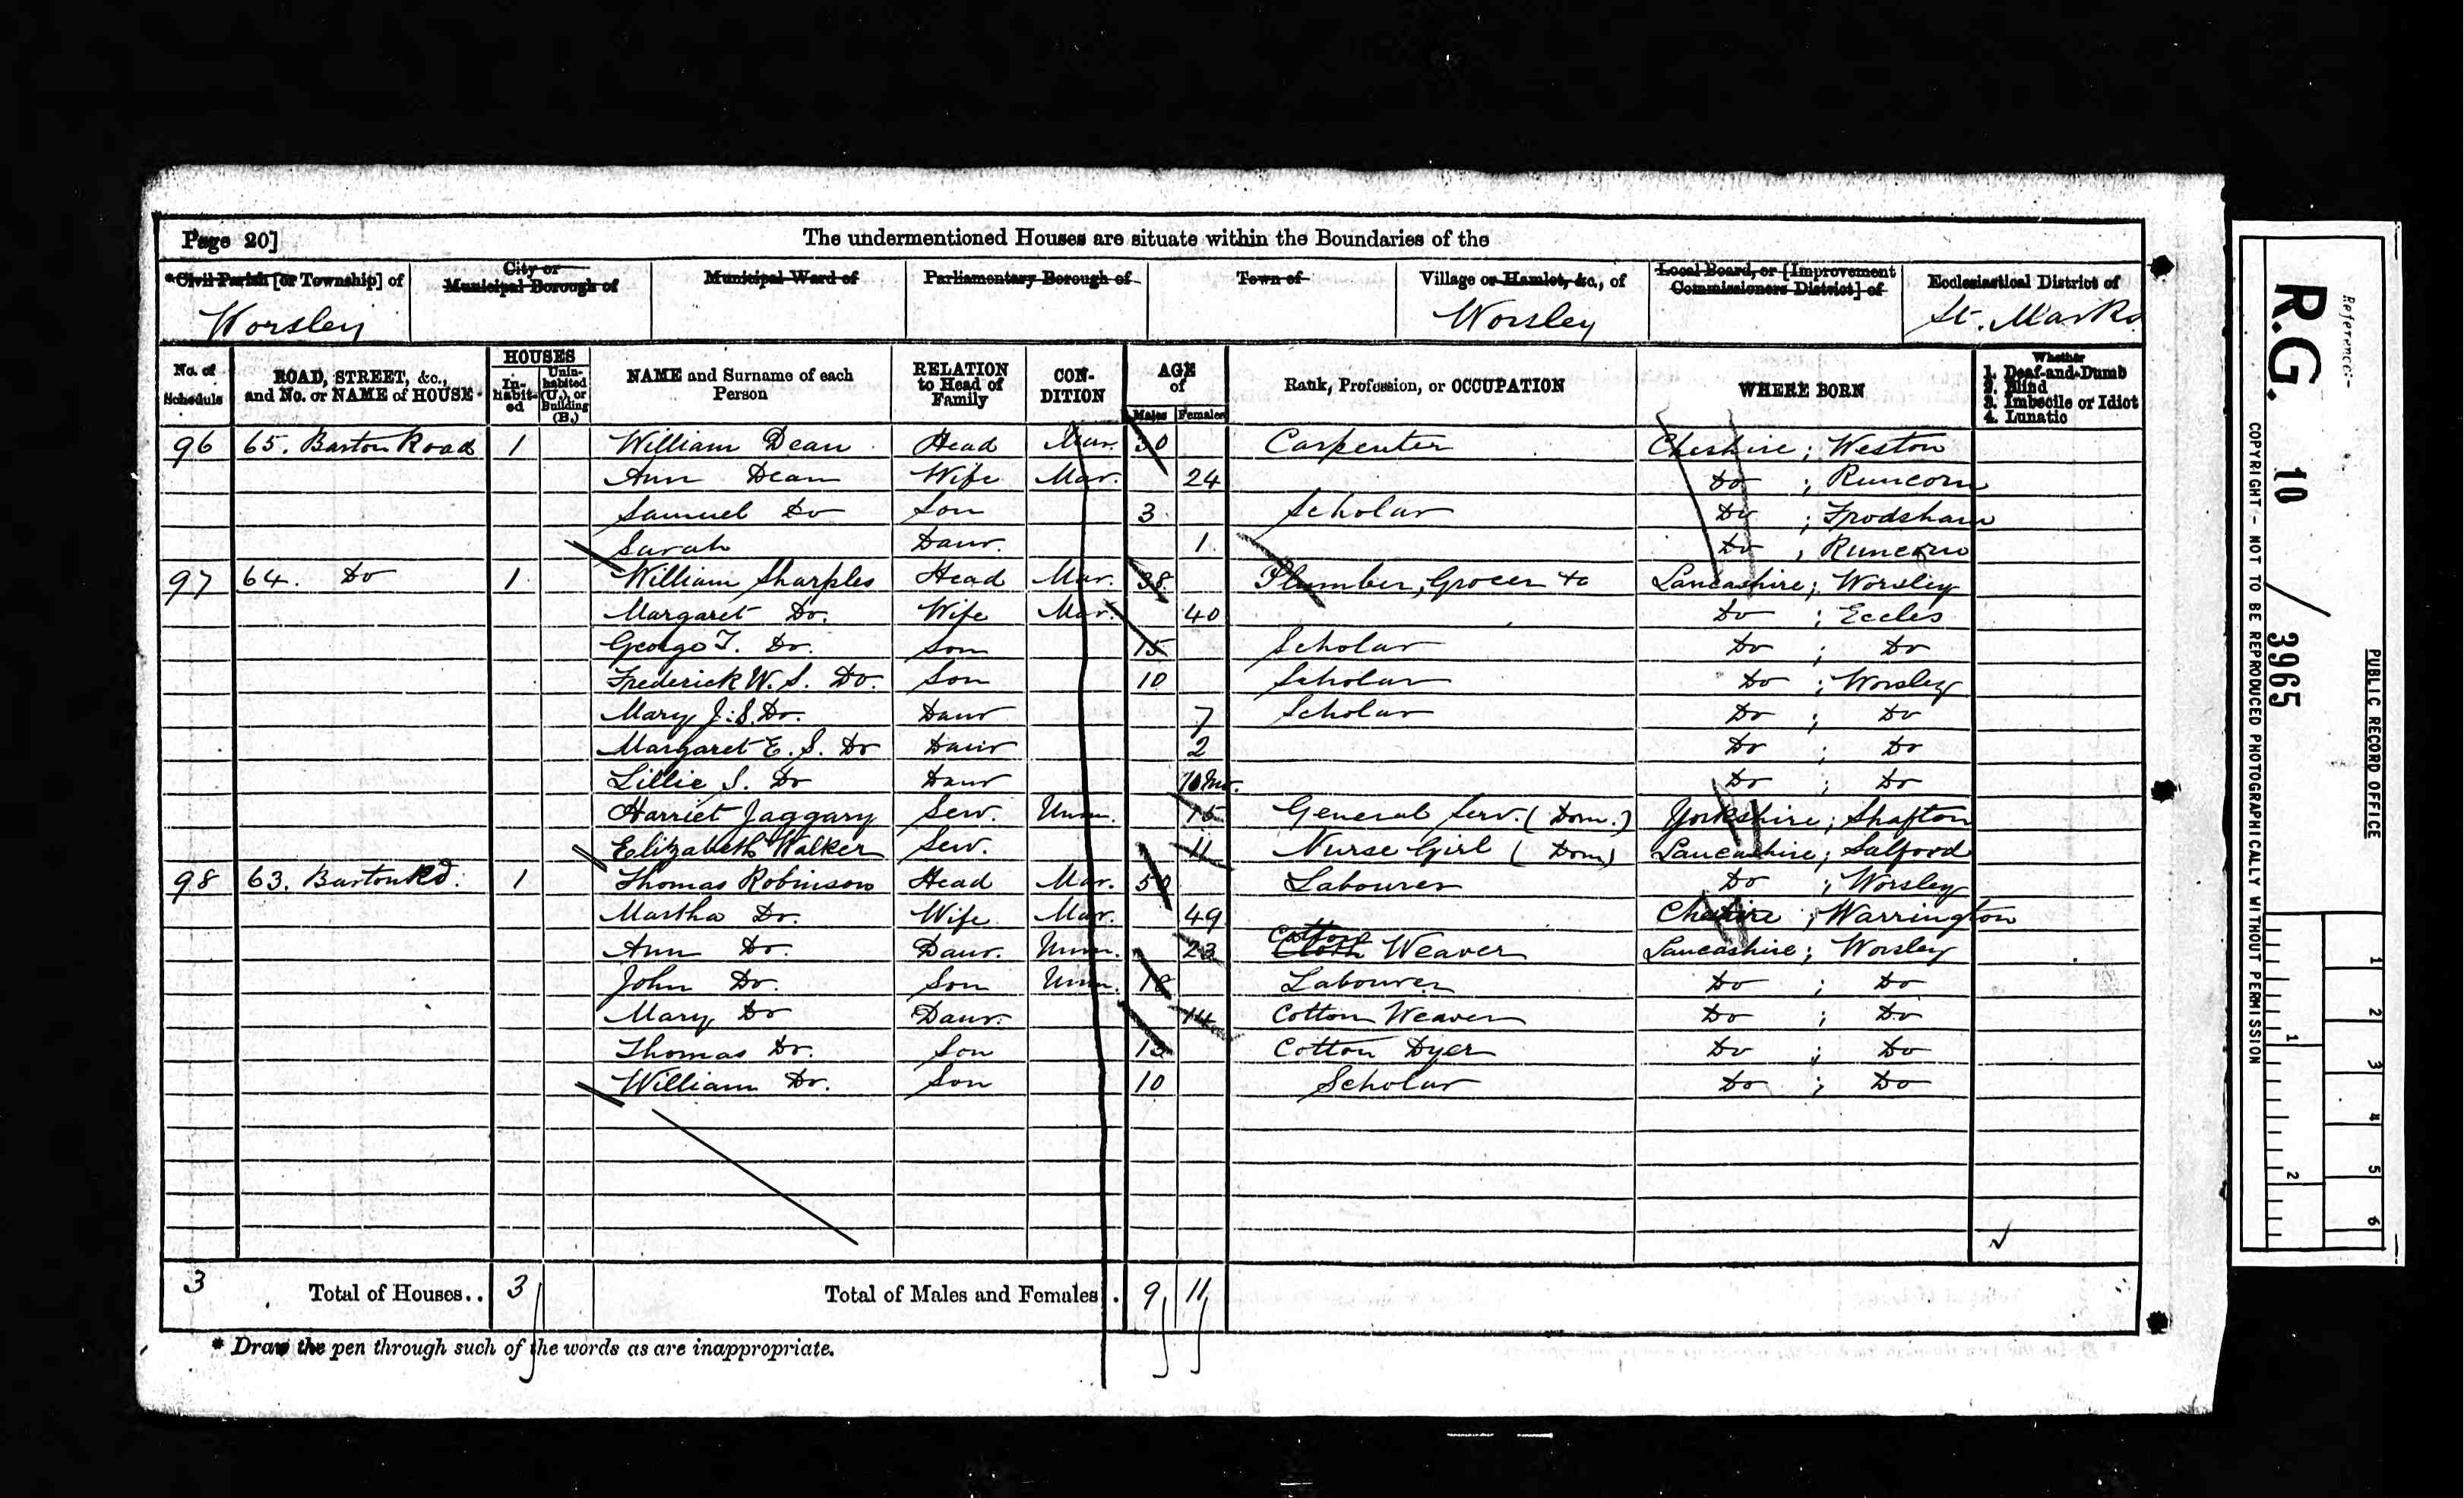 Page 20]
The undermentioned Houses are situate within the Boundaries of the
*Civil Parish [or Township] of
City or Municipal Borough of
Municipal Ward of
Parliamentary Borough of
Town of
Village or Hamlet, &c., of
Local Board, or [Improvement Commissioners District] of
Ecclesiastical District of
Worsley
Worsley
St. Marks
No. of Schedule
ROAD, STREET, &c., and No. or NAME of HOUSE
HOUSES
In-habit-ed
Unin-habited (U.), or Building (B.)
NAME and Surname of each Person
RELATION to Head of Family
CON-DITION
AGE of
Males
Females
Rank, Profession, or OCCUPATION
WHERE BORN
Whether
1. Deaf-and-Dumb
2. Blind
3. Imbecile or Idiot
4. Lunatic
96 65. Barton Road 1 William Dean Head Mar. 30 Carpenter Cheshire; Weston
Ann Dean Wife Mar. 24 Do ; Runcorn
Samuel Do Son 3 Scholar Do ; Frodsham
Sarah Daur. 1 Do ; Runcorn
97 64. Do 1 William Sharples Head Mar. 38 Plumber, Grocer &c Lancashire; Worsley
Margaret Do. Wife Mar. 40 Do ; Eccles
George T. Do. Son 15 Scholar Do ; Do
Frederick W. S. Do. Son 10 Scholar Do ; Worsley
Mary J. S. Do. Daur 7 Scholar Do ; Do
Margaret E. S. Do Daur 2 Do ; Do
Lillie S. Do Daur 10 Mo. Do ; Do
Harriet Jaggary Serv. Unm. 15 General Serv. (Dom.) Yorkshire; Shafton
Elizabeth Walker Serv. 11 Nurse Girl (Dom) Lancashire; Salford
98 63. Barton Rd. 1 Thomas Robinson Head Mar. 50 Labourer Do ; Worsley
Martha Do. Wife Mar. 49 Cheshire ; Warrington
Ann Do. Daur. Unm. 23 Cotton Cloth Weaver Lancashire; Worsley
John Do. Son Unm. 18 Labourer Do ; Do
Mary Do Daur. 14 Cotton Weaver Do ; Do
Thomas Do. Son 13 Cotton Dyer Do ; Do
William Do. Son 10 Scholar Do ; Do
3 Total of Houses.. 3 Total of Males and Females . 9 11
* Draw the pen through such of the words as are inappropriate.
Reference:-
R.G. 10 / 3965
PUBLIC RECORD OFFICE
COPYRIGHT - NOT TO BE REPRODUCED PHOTOGRAPHICALLY WITHOUT PERMISSION
1 2
1 2 3 4 5 6